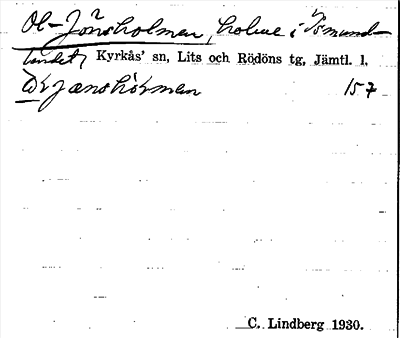 Ol-Jönsholmen, holme i Ismund-
sundet, Kyrkås' sn, Lits och Rödöns tg, Jämtl. l.
157
C. Lindberg 1930.